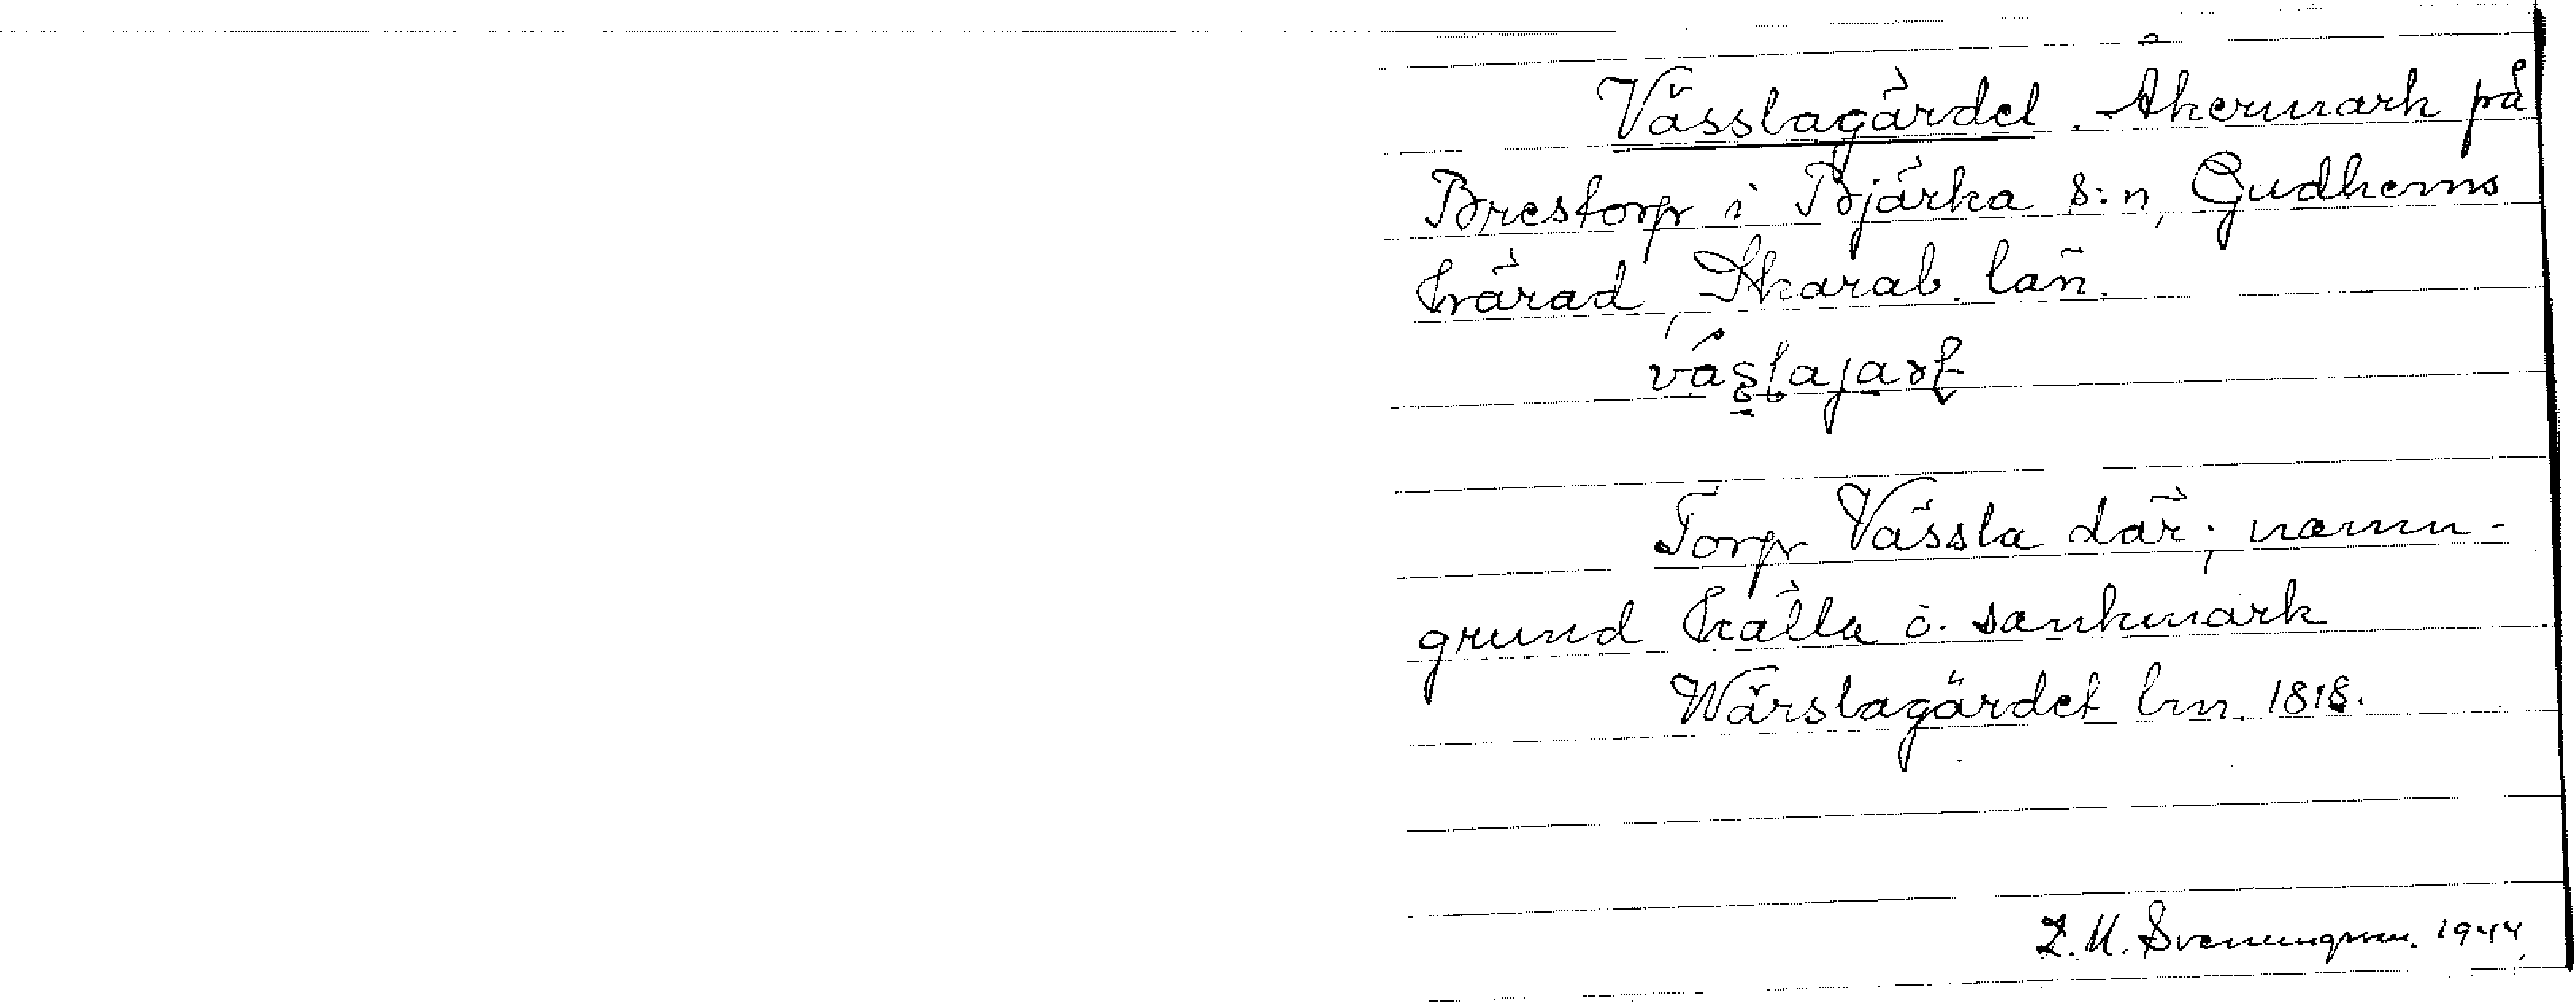 Vässlagärdet. Åkermark på
Brestorp i Bjärka s:n, Gudhems
härad, Skarab. län.

Torp Vässla där; namn-
grund källa o. sankmark
Wärslagärdet lm. 1818.
Z. M. Sveningsson. 1944